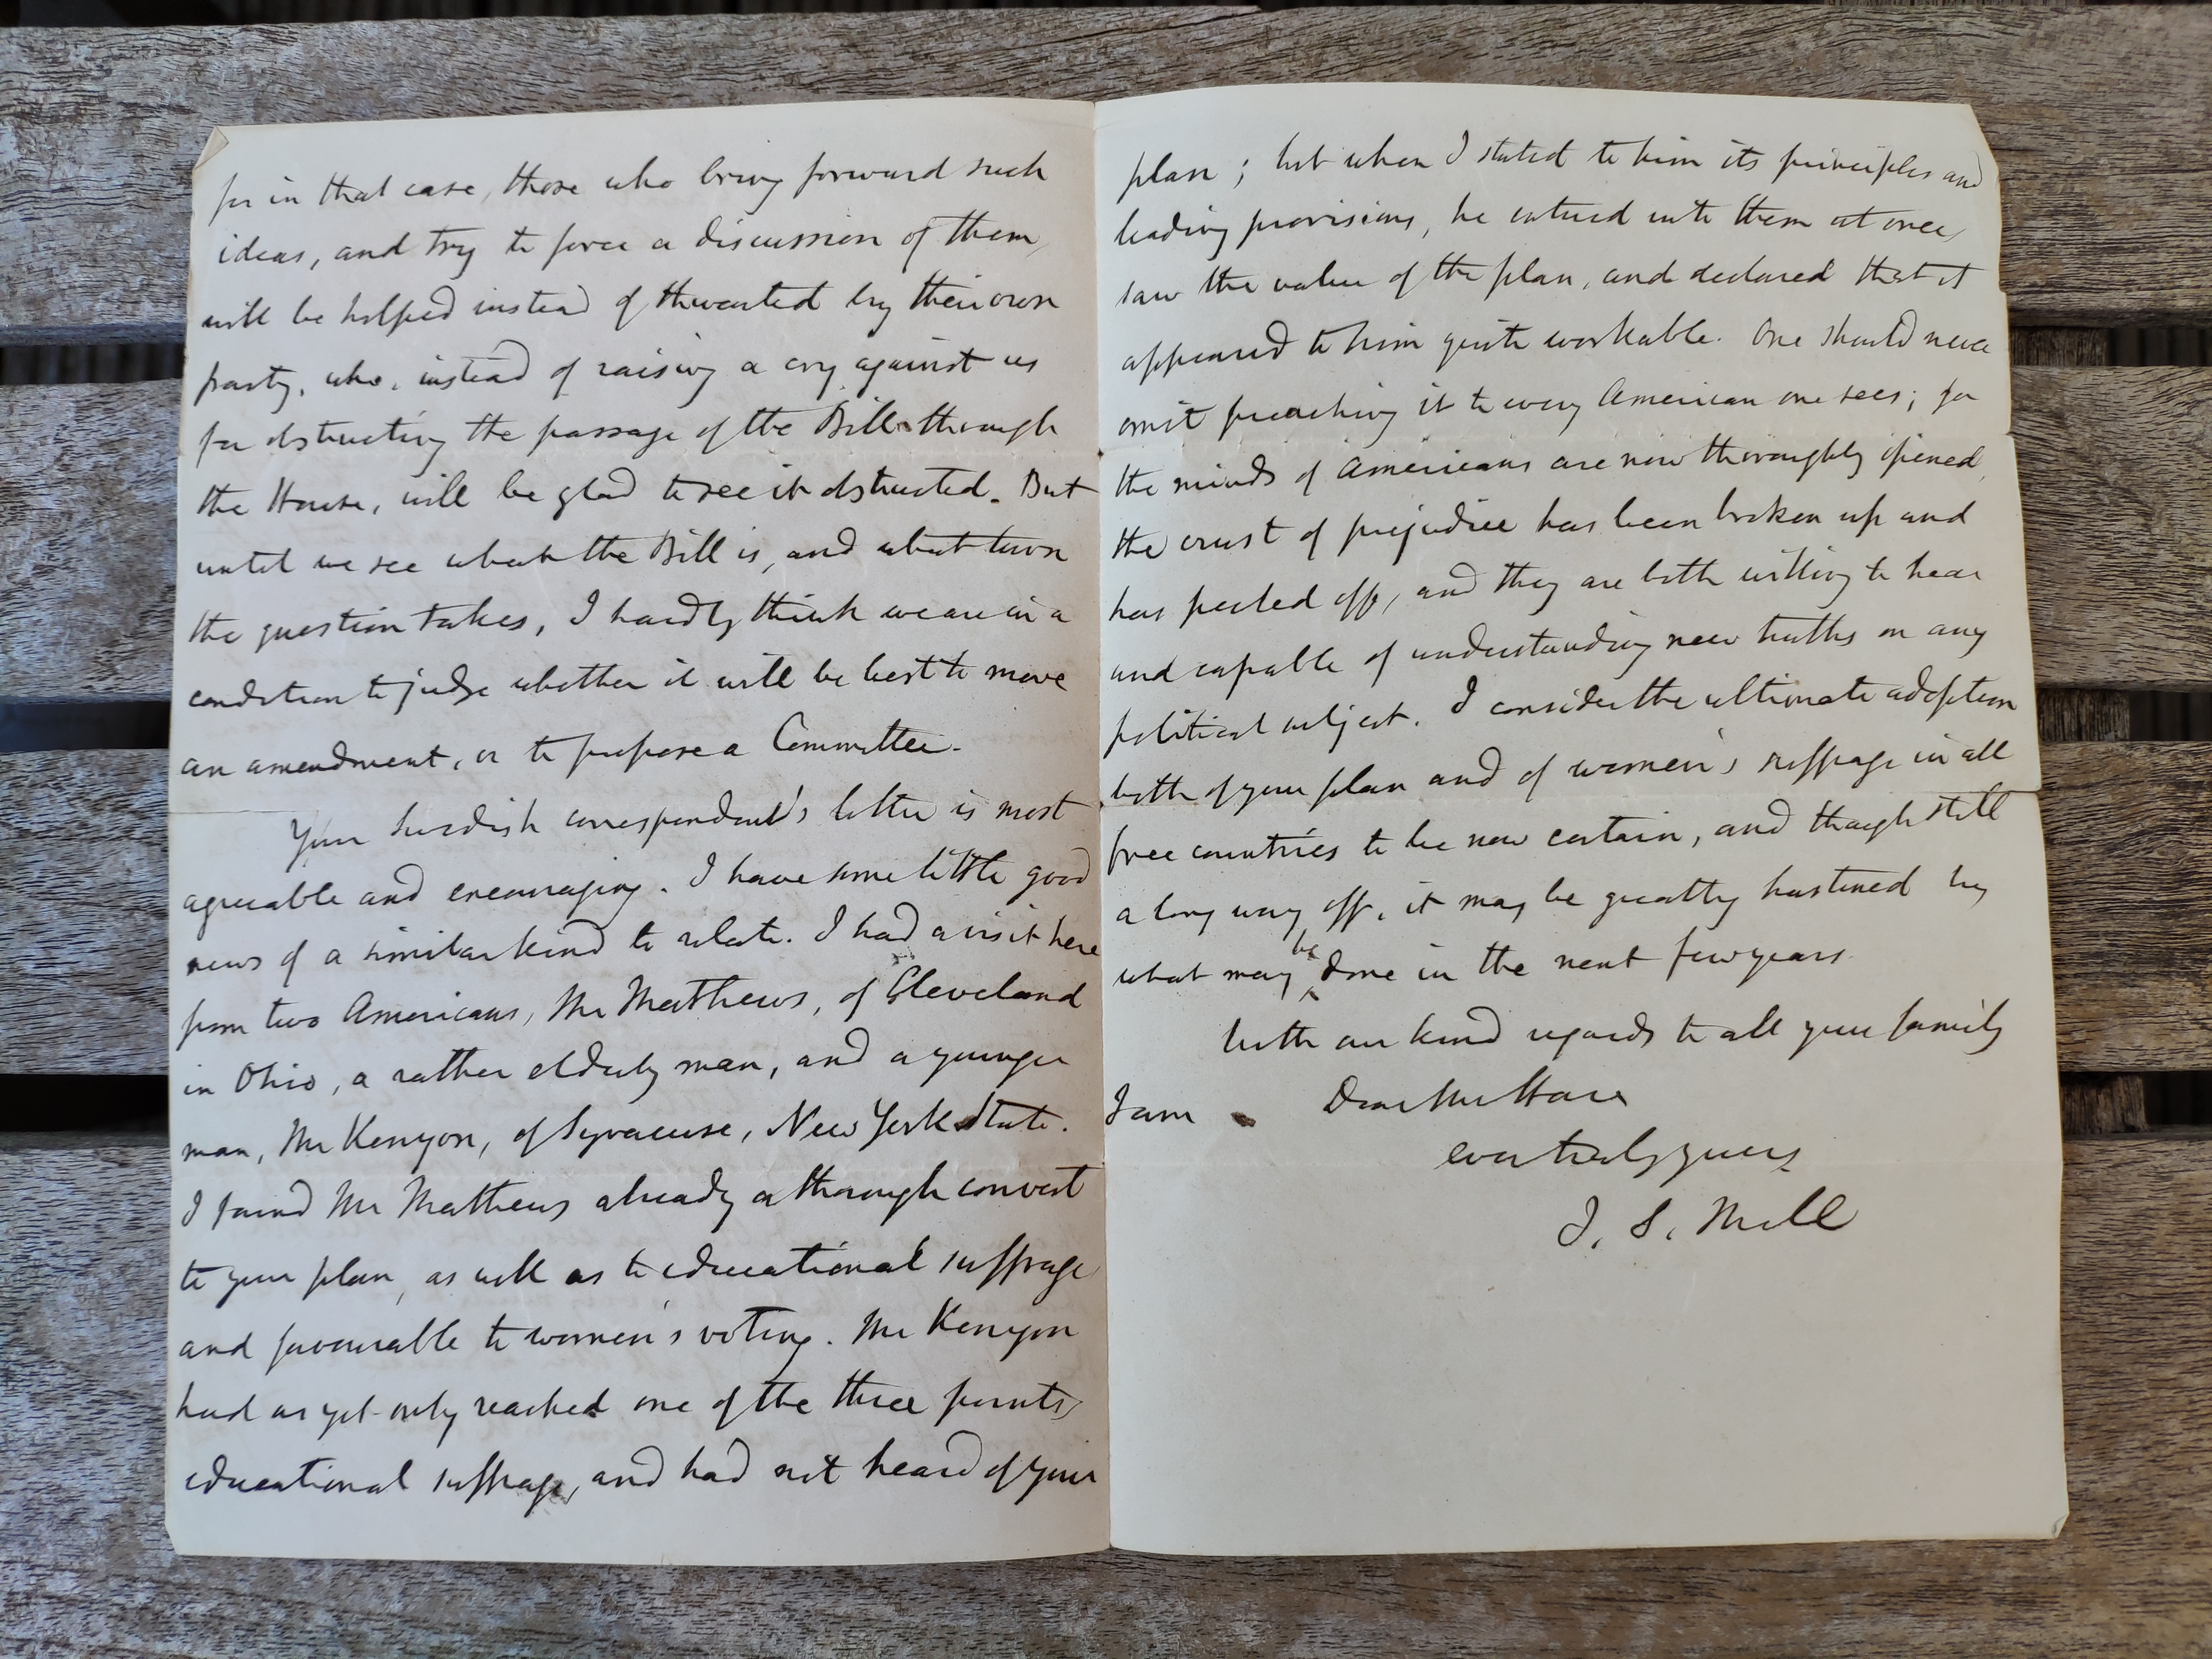 for in that case, those who bring forward such
ideas, and try to force a discussion of them,
will be helped instead of thwarted by their own
party, who, instead of raising a cry against us
for obstructing the passage of the Bill through
the House, will be glad to see it obstructed. But
until we see what the Bill is, and what turn
the question takes, I hardly think we are in a
condition to judge whether it will be best to move
an amendment, or to propose a Committee.
Your Swedish correspondent's letter is most
agreeable and encouraging. I have some little good
news of a similar kind to relate. I had a visit here
from two Americans, Mr Mathews, of Cleveland
in Ohio, a rather elderly man, and a younger
man, Mr Kenyon, of Syracuse, New York State.
I found Mr Mathews already a thorough convert
to your plan, as well as to educational suffrage
and favourable to women's voting. Mr Kenyon
had as yet only reached one of the three points,
educational suffrage, and had not heard of your
plan; but when I stated to him its principles and
leading provisions, he entered into them at once,
saw the value of the plan, and declared that it
appeared to him quite workable. One should never
omit preaching it to every American one sees; for
the minds of Americans are now thoroughly opened,
the crust of prejudice has been broken up and
has peeled off, and they are both willing to hear
and capable of understanding new truths on any
political subject. I consider the ultimate adoption
both of your plan and of women's suffrage in all
free countries to be now certain, and though still
a long way off, it may be greatly hastened by
what may be done in the next few years.
With our kind regards to all your family
I am Dear Mr Hare
ever truly yours
J. S. Mill